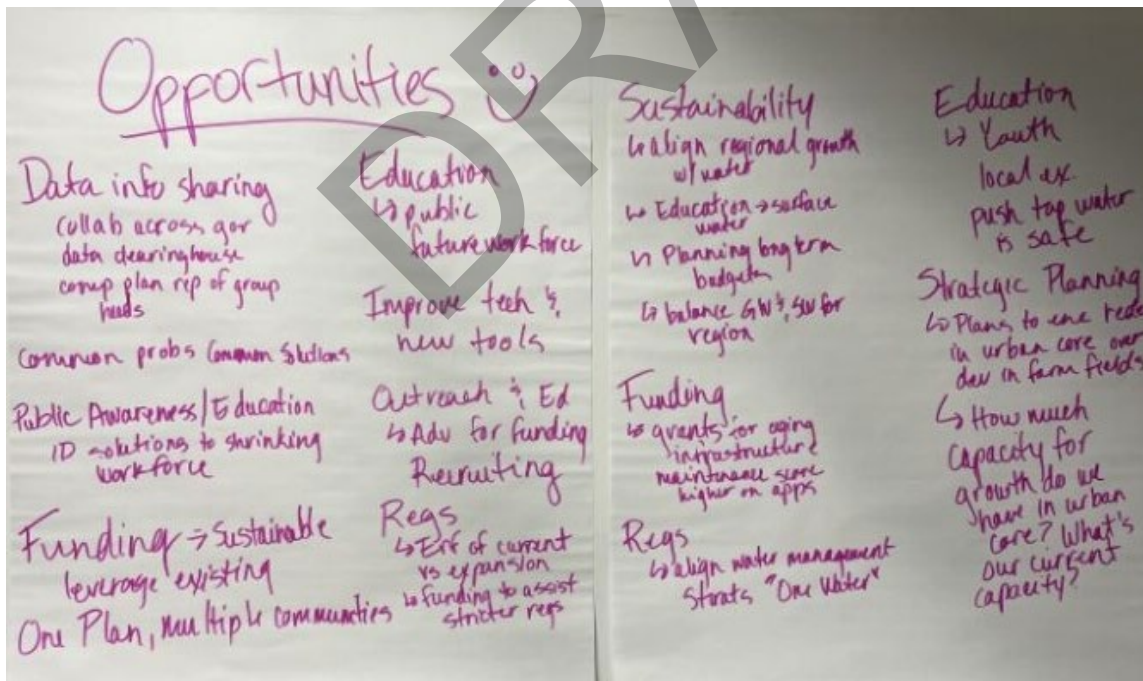 Opportunities
Data info sharing
collab across gov
data clearinghouse
comp plan rep of group
heads
Common probs Common Solutions
Public Awareness/Education
ID solutions to shrinking
workforce
Funding → Sustainable
leverage existing
One Plan, multiple communities
Education
↳ public
future work force
Improve tech &
new tools
Outreach & Ed
↳ Adv for funding
Recruiting
Regs
↳ Enf of current
vs expansion
↳ funding to assist
stricter regs
Sustainability
↳ align regional growth
w/ water
↳ Education → surface
water
↳ Planning long term
budgets
↳ balance GW & SW for
region
Funding
↳ grants for aging
infrastructure
maintenance score
higher on apps
Regs
↳ align water management
strats "One Water"
Education
↳ Youth
local ex.
push tap water
is safe
Strategic Planning
↳ Plans to enc rede
in urban core over
dev in farm fields
↳ How much
capacity for
growth do we
have in urban
core? What's
our current
capacity?
DRA